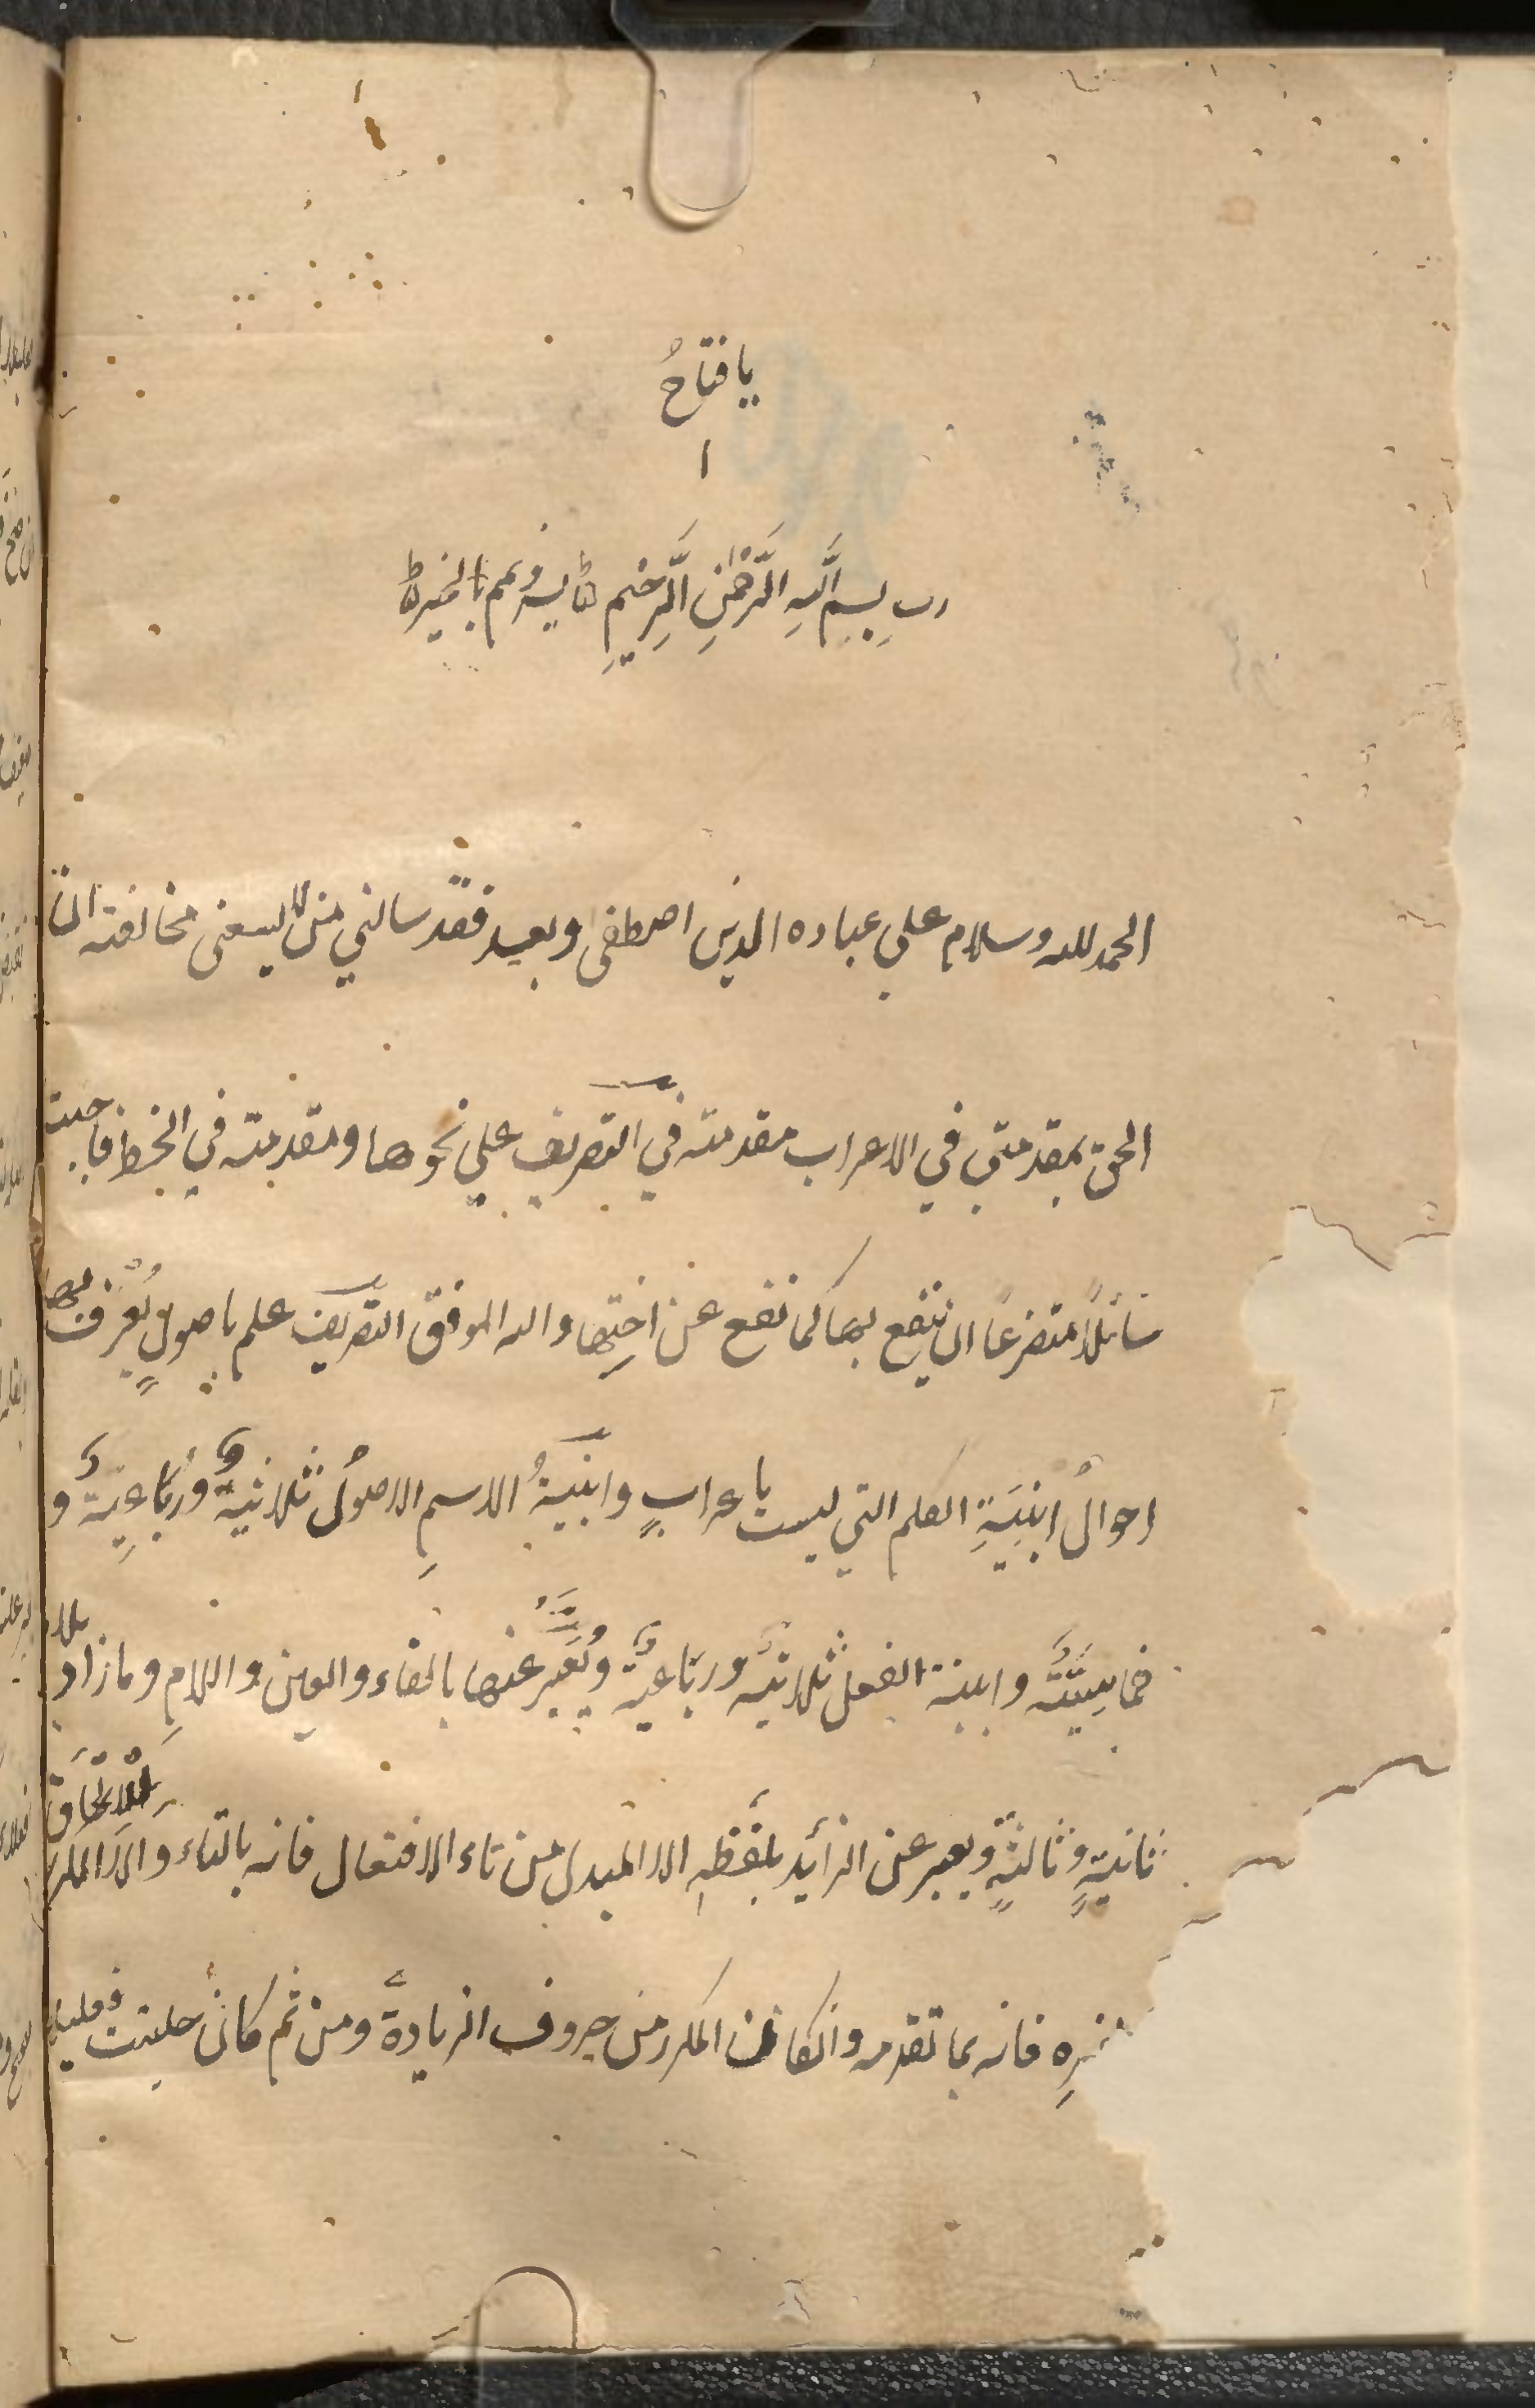 يا فتاحُ
ا
رب بِسمِ اللّٰهِ الرَّحْمٰنِ الرَّحِيمِ يسر وتمم بالخير
الحمد لله وسلام علي عباده الذين اصطفى وبعد فقد سالني من لا يسعنى مخالفته ان
الحق بمقدمتي في الاعراب مقدمته في التصريف علي نحوها ومقدمته في الخط فاجبت
سَائلًا متضرعًا ان ينفع بها كما نفع عن اختِها والله الموفق التصريف علم باصولٍ يُعْرف بها
احوالُ ابنِيَةِ الكلم التي ليست باعرابٍ وابنيةُ الاسمِ الاصولُ ثلاثيةٌ ورُباعيّة و
خماسِيَّة وابنية الفعل ثلاثيّة ورباعيّة ويُعَبَّر عنها بالفاء والعين واللامِ وما زاد بلام
ثانيةٍ وثالثةٍ ويعبر عن الزائد بلفظهِ الا المبدل من تاء الافتعال فانه بالتاء والا المكرر لِلْاِلْحَاقِ
فانه بما تقدمه وانكان المكرر من حروف الزيادة ومن ثم كان حلتيت فعليلا